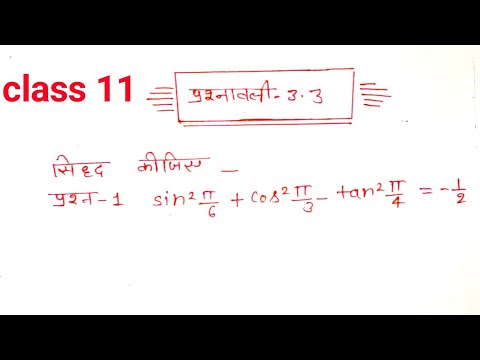 class 11
प्रश्नावली-3.3
सिध्द कीजिए -
प्रश्न-1 sin²π/6 + cos²π/3 - tan²π/4 = -1/2